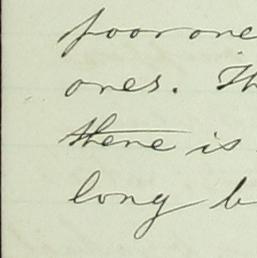 poor one
ones. Th
there is
long b